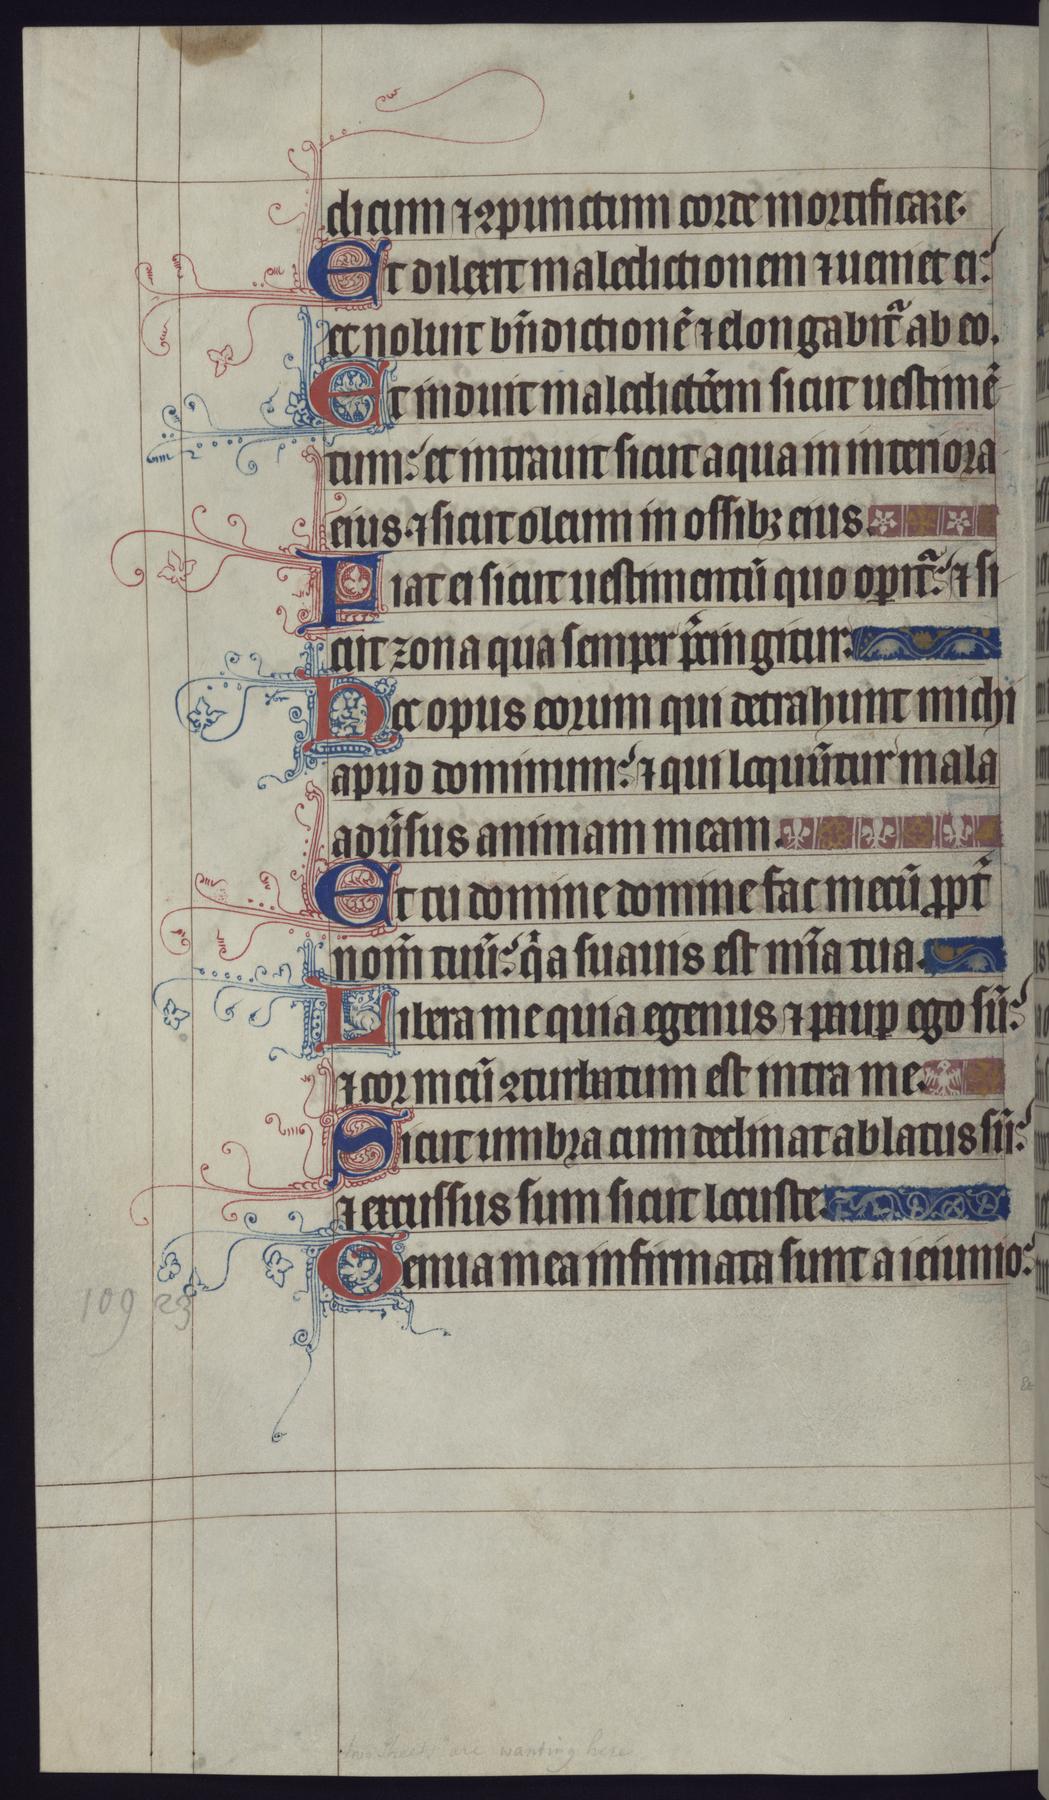 dicum ⁊ ꝯpunctum corde mortificare.
Et dilexit maledictionem ⁊ ueniet ei:
et noluit bn̄dictionē ⁊ elongabit᷑ ab eo.
Et induit maledictōem sicut uestimē
tum: et intrauit sicut aqua in interiora
eius. ⁊ sicut oleum in ossibꝫ eius.
Fiat ei sicut uestimentū quo opit᷑: ⁊ si
cut zona qua semper p̄cingitur.
Hec opus eorum qui detrahunt michi
apud dominum: ⁊ qui locuūtur mala
adūsus animam meam.
Et tu domine domine fac mecū ꝓpt̄
nom̄ tuū: q̄a suauis est mīa tua.
Libera me quia egenus ⁊ pauꝑ ego sū:
⁊ cor meū ꝯturbatum est intra me.
Sicut umbra cum declinat ablatus sū:
⁊ excussus sum sicut locuste.
Genua mea infirmata sunt a ieiunio:
109 23
two sheets are wanting here